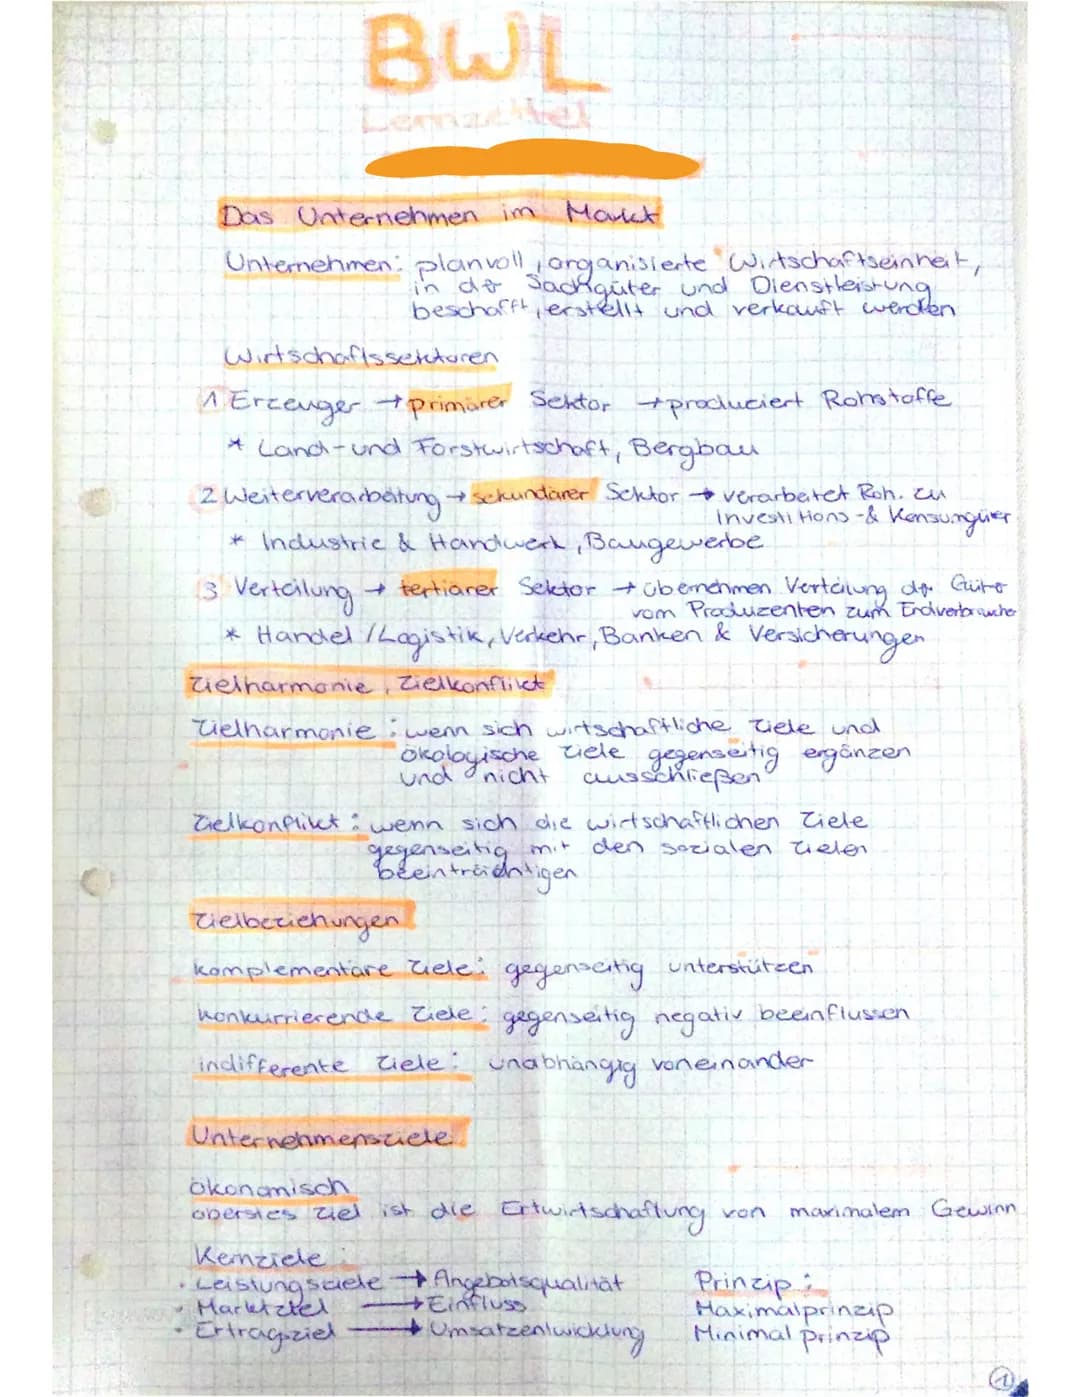 BWL
Lernzettel
Das Unternehmen im Markt
Unternehmen: planvoll, organisierte Wirtschaftseinheit,
in der Sachgüter und Dienstleistung
beschafft, erstellt und verkauft werden
Wirtschaftssektoren
1 Erzeuger → primärer Sektor → produciert Rohstoffe
* Land- und Forstwirtschaft, Bergbau
2 Weiterverarbeitung → sekundärer Sektor → verarbeitet Roh. zu
Investitions -& Konsumgüter
* Industrie & Handwerk, Baugewerbe
3 Verteilung → tertiärer Sektor → übernehmen Verteilung der Güter
vom Produzenten zum Endverbraucher
* Handel / Logistik, Verkehr, Banken & Versicherungen
Zielharmonie, Zielkonflikt
Zielharmonie: wenn sich wirtschaftliche Ziele und
ökologische Ziele gegenseitig ergänzen
und nicht ausschließen
Zielkonflikt: wenn sich die wirtschaftlichen Ziele
gegenseitig mit den sozialen Zielen
beeinträchtigen
Zielbeziehungen
komplementäre Ziele: gegenseitig unterstützen
konkurrierende Ziele: gegenseitig negativ beeinflussen
indifferente Ziele: unabhängig voneinander
Unternehmensziele
ökonomisch
oberstes Ziel ist die Ertwirtschaftung von maximalem Gewinn
Kernziele:
• Leistungsziele → Angebotsqualität
• Marktziel → Einfluss
• Ertragsziel → Umsatzentwicklung
Prinzip:
Maximalprinzip
Minimalprinzip
1